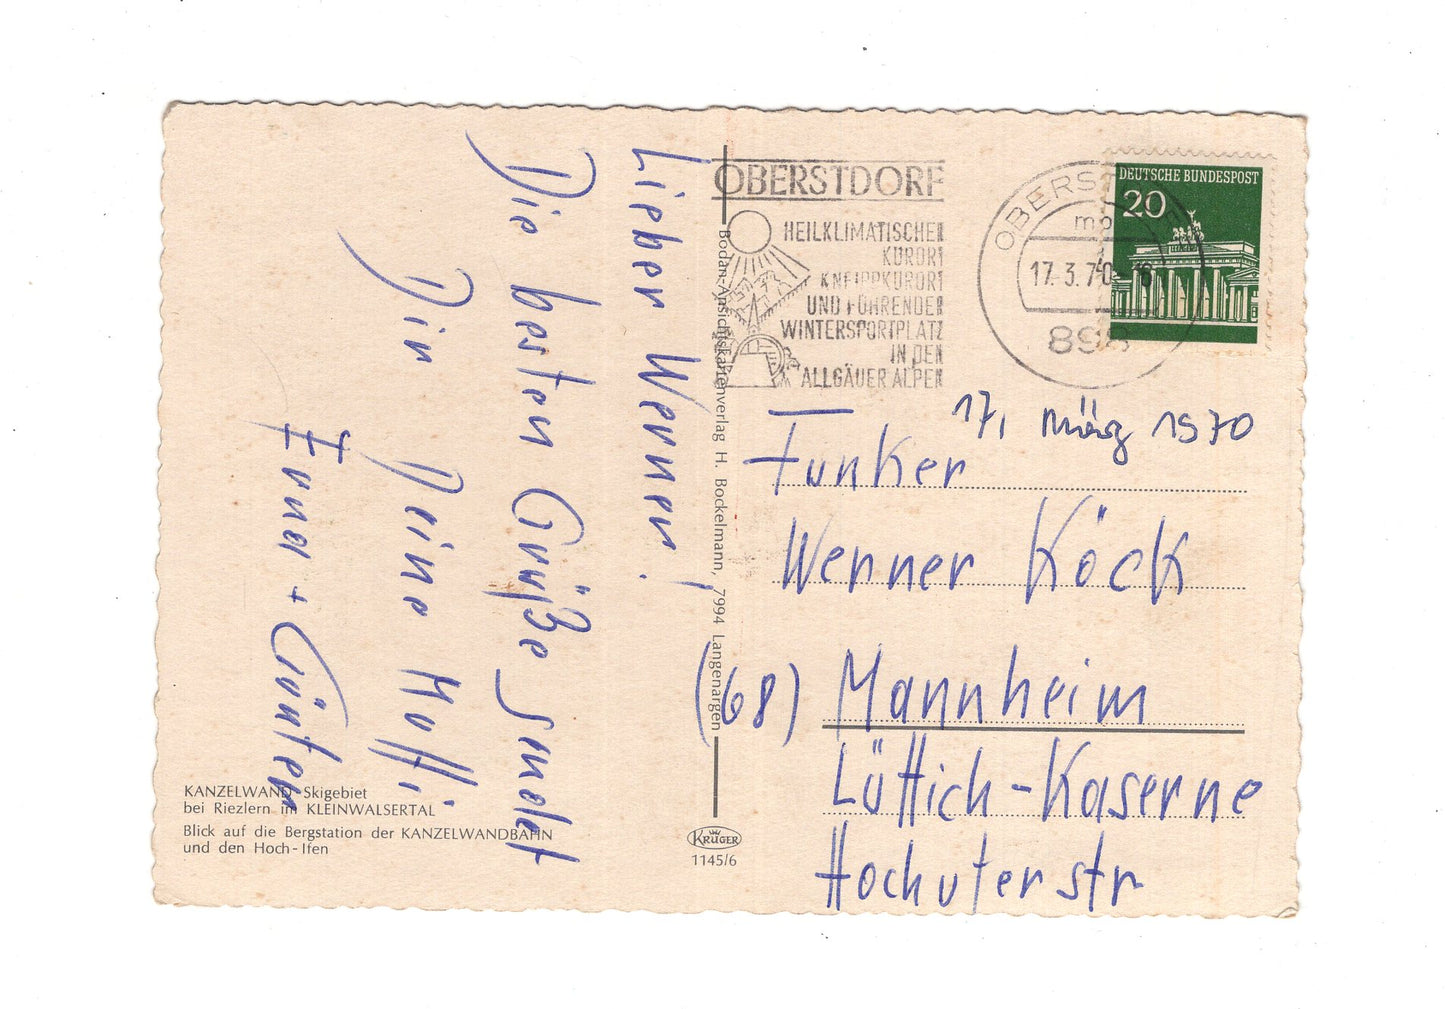 Lieber Werner!
Die besten Grüße sendet
Dir Deine Mutti
Erna + Günter
KANZELWAND Skigebiet
bei Riezlern im KLEINWALSERTAL
Blick auf die Bergstation der KANZELWANDBAHN
und den Hoch-Ifen
Bodan-Ansichtskartenverlag H. Bockelmann, 7994 Langenargen
KRÜGER
1145/6
OBERSTDORF
HEILKLIMATISCHER
KURORT
KNEIPPKURORT
UND FÜHRENDER
WINTERSPORTPLATZ
IN DEN
ALLGÄUER ALPEN
OBERSTDORF
17.3.70
898
DEUTSCHE BUNDESPOST
20
17. März 1970
Funker
Werner Köck
(68) Mannheim
Lüttich-Kaserne
Hochuferstr